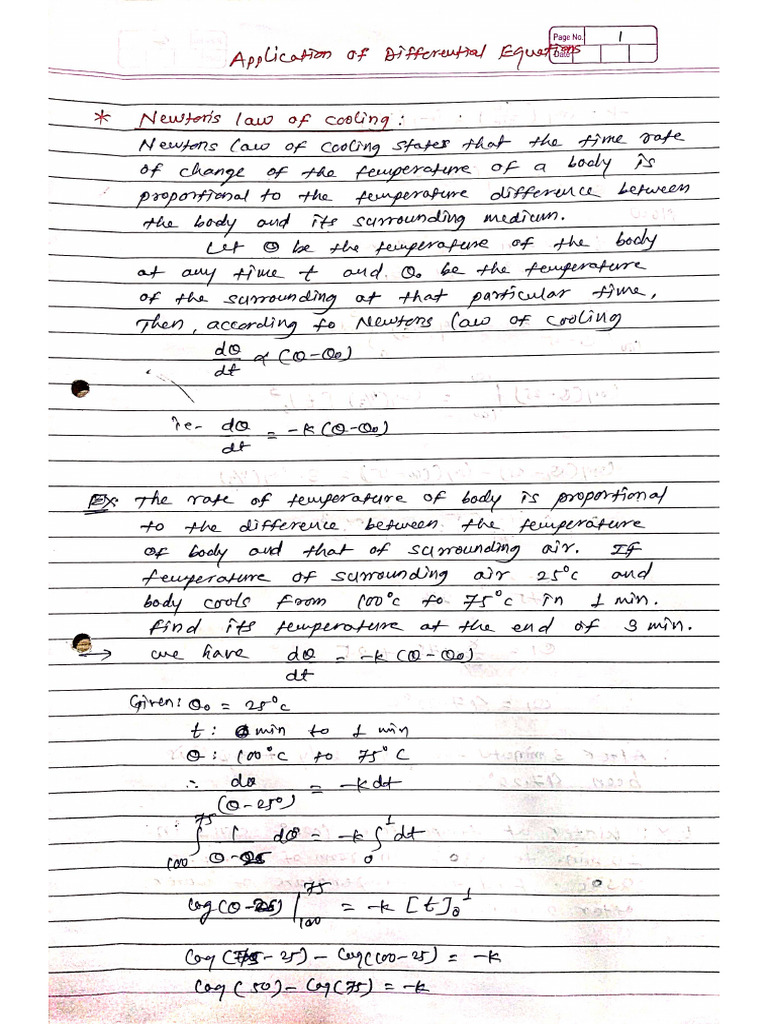 Page No. 1
Date
Application of Differential Equations
* Newton's law of cooling:
Newtons law of cooling states that the time rate
of change of the temperature of a body is
proportional to the temperature difference between
the body and its surrounding medium.
Let θ be the temperature of the body
at any time t and θ₀ be the temperature
of the surrounding at that particular time,
Then, according to Newtons law of cooling
dθ/dt ∝ (θ-θ₀)
ie- dθ/dt = -k(θ-θ₀)
Ex: The rate of temperature of body is proportional
to the difference between the temperature
of body and that of surrounding air. If
temperature of surrounding air 25°c and
body cools from 100°c to 75°c in 1 min.
find its temperature at the end of 3 min.
→ we have dθ/dt = -k(θ-θ₀)
Given: θ₀ = 25°c
t: 0 min to 1 min
θ: 100°c to 75°C
∴ dθ/(θ-25°) = -kdt
∫₁₀₀⁷⁵ 1/(θ-25) dθ = -k∫₀¹dt
log(θ-25)|₁₀₀⁷⁵ = -k[t]₀¹
log(75-25) - log(100-25) = -k
log(50) - log(75) = -k